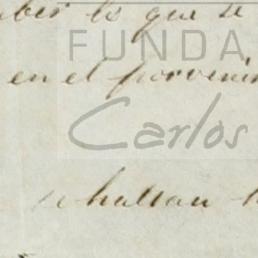 ber lo que se
FUNDA
en el porvenir
Carlos
se hallan